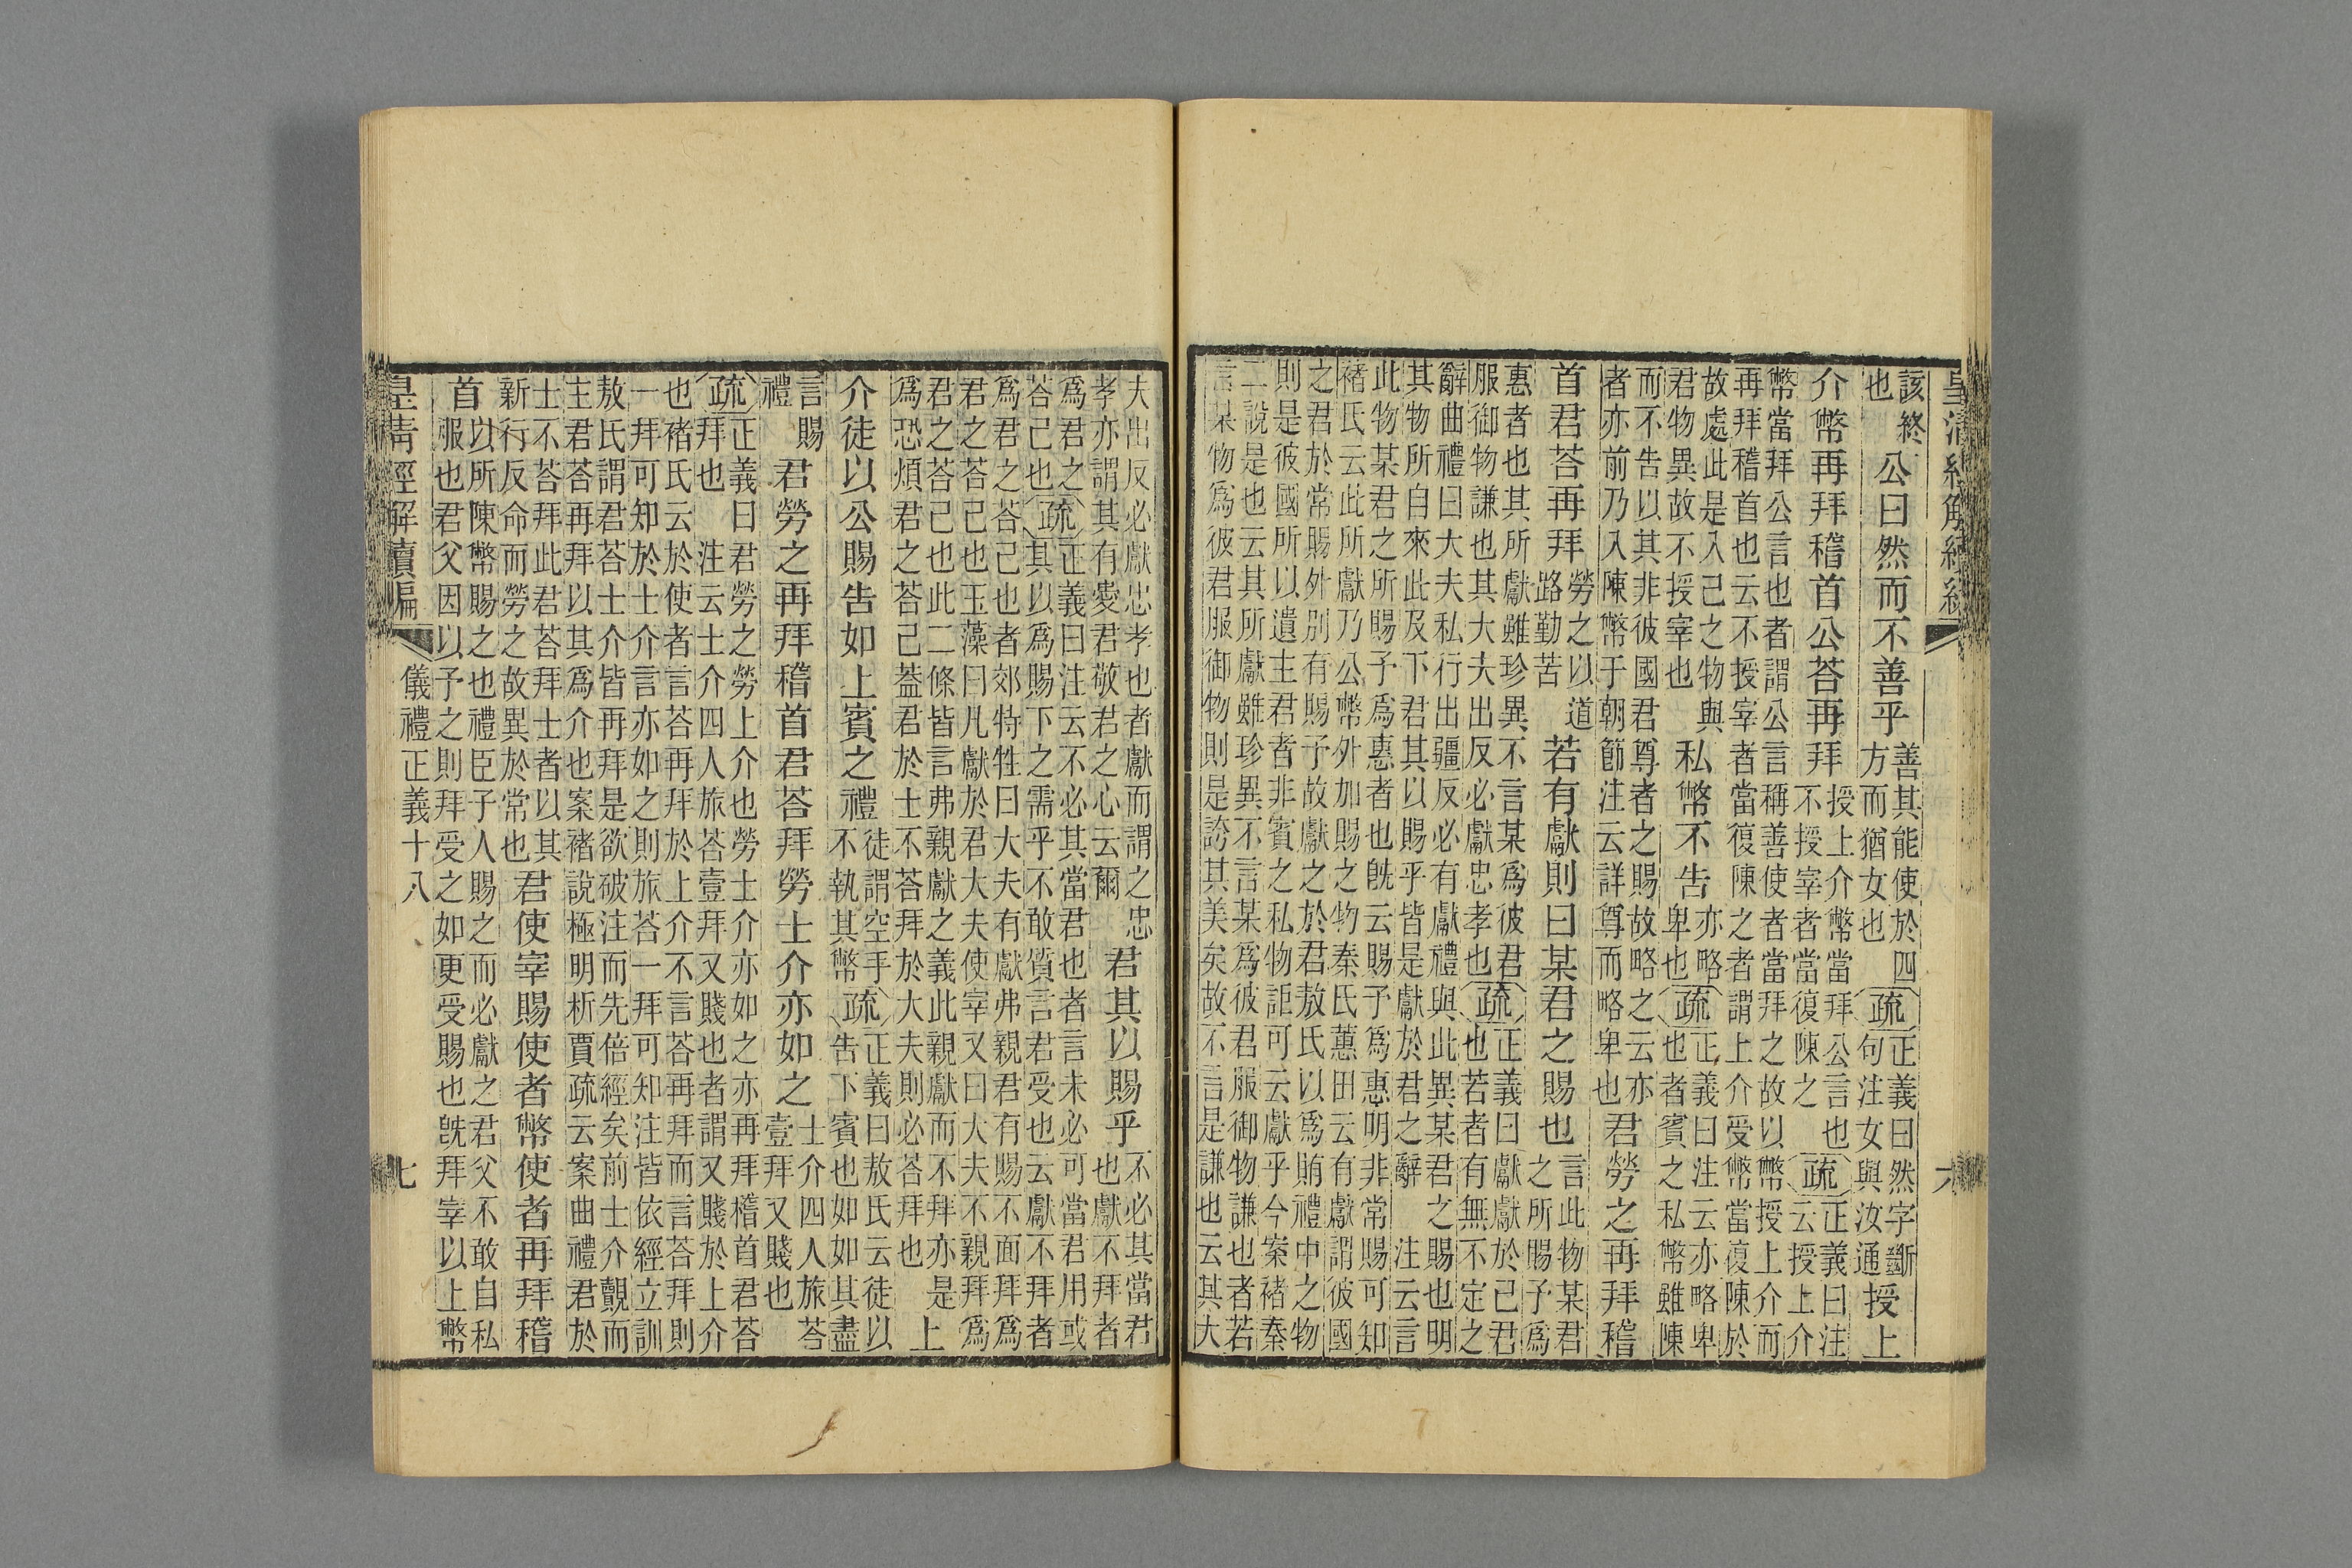 皇清經解續編　六
該終也公曰然而不善乎善其能使於四方而猶女也疏正義曰然字斷句注女與汝通授上
介幣再拜稽首公荅再拜授上介幣當拜公言也不授宰者當復陳之疏正義曰注云授上介
幣當拜公言也者謂公言稱善使者當拜之故以幣授上介而
再拜稽首也云不授宰者當復陳之者謂上介受幣當復陳於
故處此是入己之物與君物異故不授宰也私幣不告亦略卑也疏正義曰注云亦略卑也者賓之私幣雖陳
而不告以其非彼國君尊者之賜故略之云亦者亦前乃入陳幣于朝節注云詳尊而略卑也君勞之再拜稽
首君荅再拜勞之以道路勤苦若有獻則曰某君之賜也言此物某君之所賜予爲
惠者也其所獻雖珍異不言某爲彼君服御物謙也其大夫出反必獻忠孝也疏正義曰獻獻於己君也若者有無不定之
辭曲禮曰大夫私行出疆反必有獻禮與此異某君之賜也明
其物所自來此及下君其以賜乎皆是獻於君之辭　注云言
此物某君之所賜予爲惠者也旣云賜予爲惠明非常賜可知
褚氏云此所獻乃公幣外加賜之物秦氏蕙田云有獻謂彼國
之君於常賜外別有賜予故獻之於君敖氏以爲賄禮中之物
則是彼國所以遺主君者非賓之私物詎可云獻乎今案褚秦
二說是也云其所獻雖珍異不言某爲彼君服御物謙也者若
言某物爲彼君服御物則是誇其美矣故不言是謙也云其大
夫出反必獻忠孝也者獻而謂之忠孝亦謂其有愛君敬君之心云爾君其以賜乎不必其當君也獻不拜者
爲君之荅己也疏正義曰注云不必其當君也者言未必可當君用或其以爲賜下之需乎不敢質言君受也云獻不拜者
爲君之荅己也者郊特牲曰大夫有獻弗親君有賜不面拜爲
君之荅己也玉藻曰凡獻於君大夫使宰又曰大夫不親拜爲
君之荅己也此二條皆言弗親獻之義此親獻而不拜亦是
爲恐煩君之荅己蓋君於士不荅拜於大夫則必荅拜也　上
介徒以公賜告如上賓之禮徒謂空手不執其幣疏正義曰敖氏云徒以告下賓也如如其盡
言賜禮君勞之再拜稽首君荅拜勞士介亦如之士介四人旅荅壹拜又賤也
疏正義曰君勞之勞上介也勞士介亦如之亦再拜稽首君荅
拜也　注云士介四人旅荅壹拜又賤也者謂又賤於上介
也褚氏云於使者言荅再拜於上介不言荅再拜而言荅拜則
一拜可知於士介言亦如之則旅荅一拜可知注皆依經立訓
敖氏謂君荅士介皆再拜是欲破注而先倍經矣前士介覿而
主君荅再拜以其爲介也案褚說極明析賈疏云案曲禮君於
士不荅拜此君荅拜士者以其新行反命而勞之故異於常也君使宰賜使者幣使者再拜稽
首以所陳幣賜之也禮臣子人賜之而必獻之君父不敢自私
服也君父因以予之則拜受之如更受賜也旣拜宰以上幣
皇清經解續編　儀禮正義十八　七